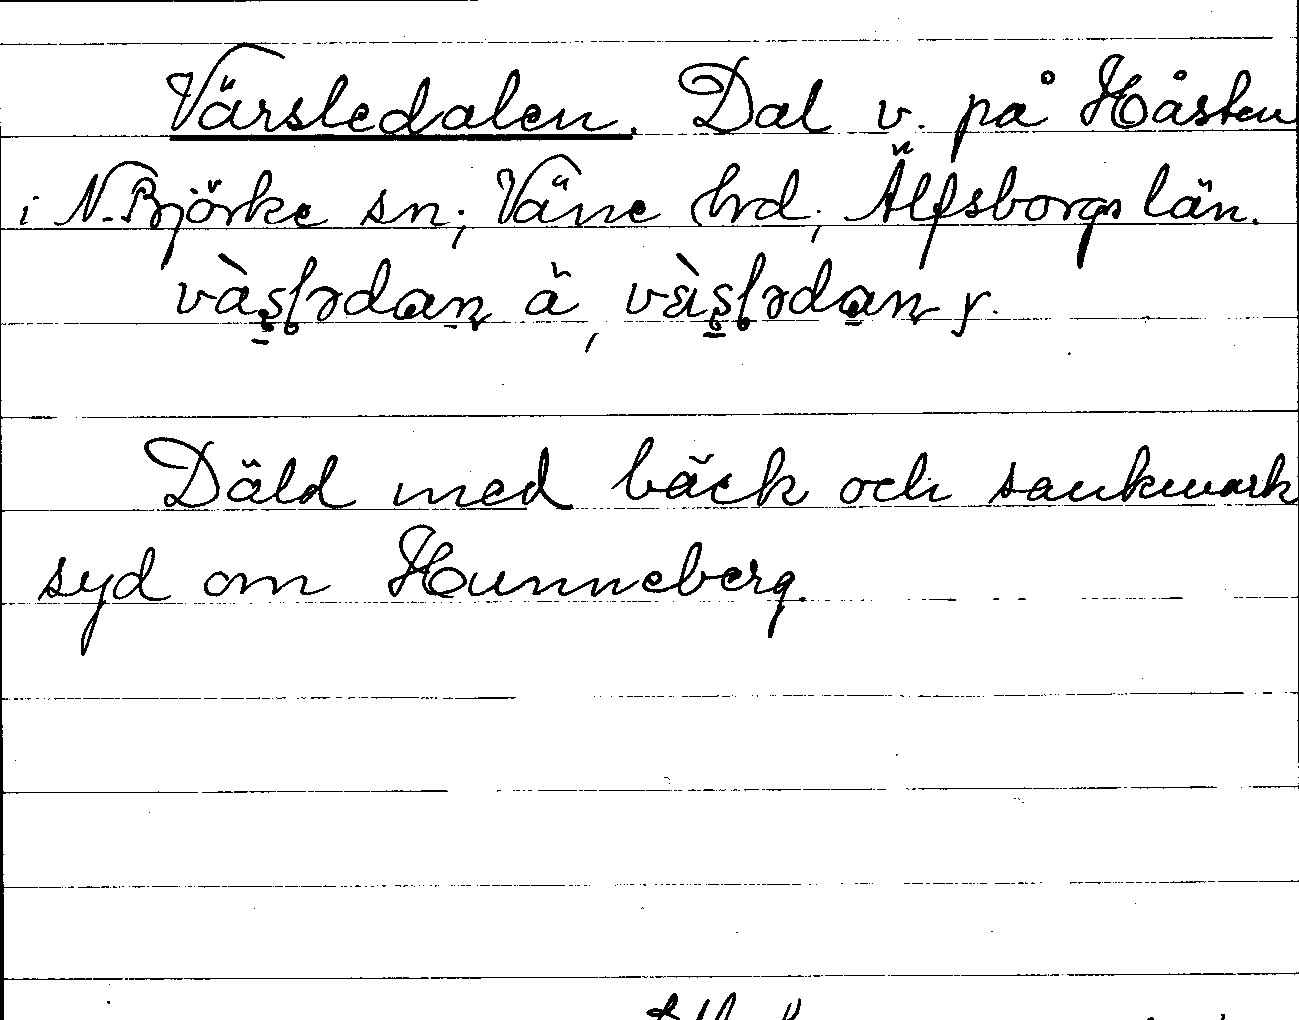 Värsledalen. Dal v. på Håsten
i N. Björke sn; Väne hrd; Älfsborgs län.
vàsḷədan ä, vàsḷədan y.
Däld med bäck och sankmark
syd om Hunneberg.